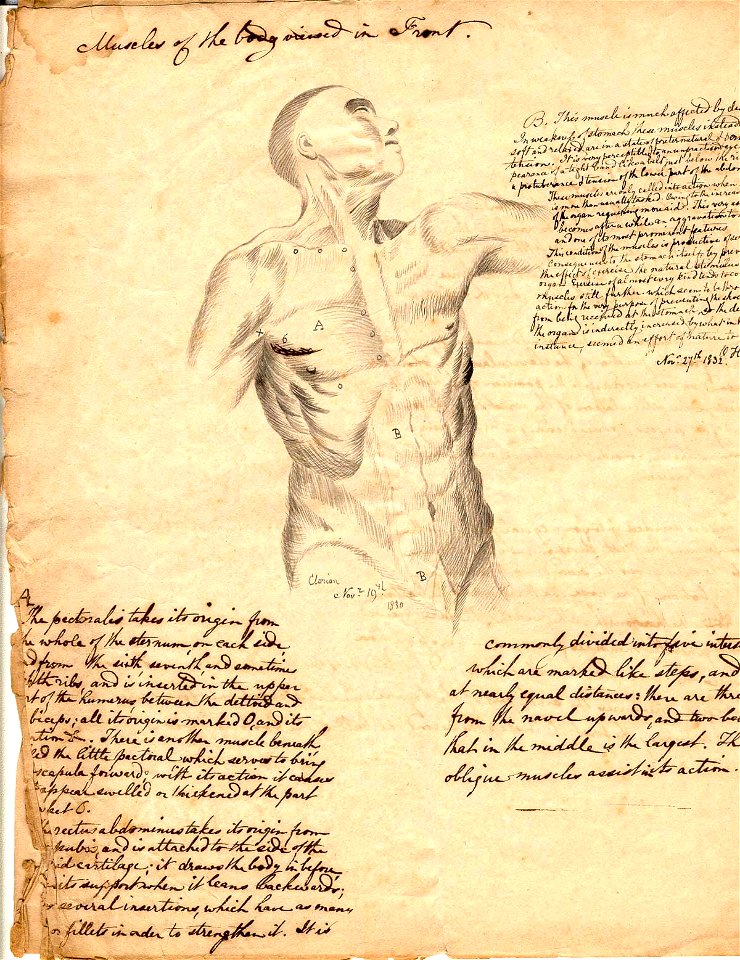 Muscles of the body viewed in Front.
B. This muscle is much affected by
In weakness of stomach these muscles instead
soft and relaxed are in a state of preternatural
tensions. It is very perceptible to an unpracticed eye
pearance of a tight band like a belt just below the
a protuberance & tension of the lower part of the
These muscles are only called into action when
is more than usually tasked. Owing to the
of the organ requiring more aid. This very
becomes after a while an aggravation to
and one of its most prominent features
This condition of the muscles is productive of
consequences to the stomach itself by
the effects of exercise the natural
organ. Exercise of almost every kind tends to
muscles still further which seem to be
action for the very purpose of preventing the
from being received at the stomach. So the
the organ is indirectly increased by what in
instance, seemed an effort of nature
Novr. 27th 1832
+ 6 A
B
B
Clorion
Novr 19th
1830
A
The pectoralis takes its origin from
the whole of the sternum on each side
from the sixth seventh, and sometime
ribs, and is inserted in the upper
of the humerus between the deltoid and
biceps; all its origin is markid O, and its
. There is another muscle beneath
the little pectoral which serves to bring
scapula forward; with its action it causes
appear swelled or thickened at the part
6.
rectus abdominus takes its origin from
pubis, and is attached to the side of the
cartilage; it draws the body in before
its support when it leans backwards;
several insertions, which have as many
or fillets in order to strengthen it. It is
commonly divided into five
which are marked like steps, and
at nearly equal distances: there are
from the navel upwards, and two
that in the middle is the largest.
oblique muscles assist in its action.